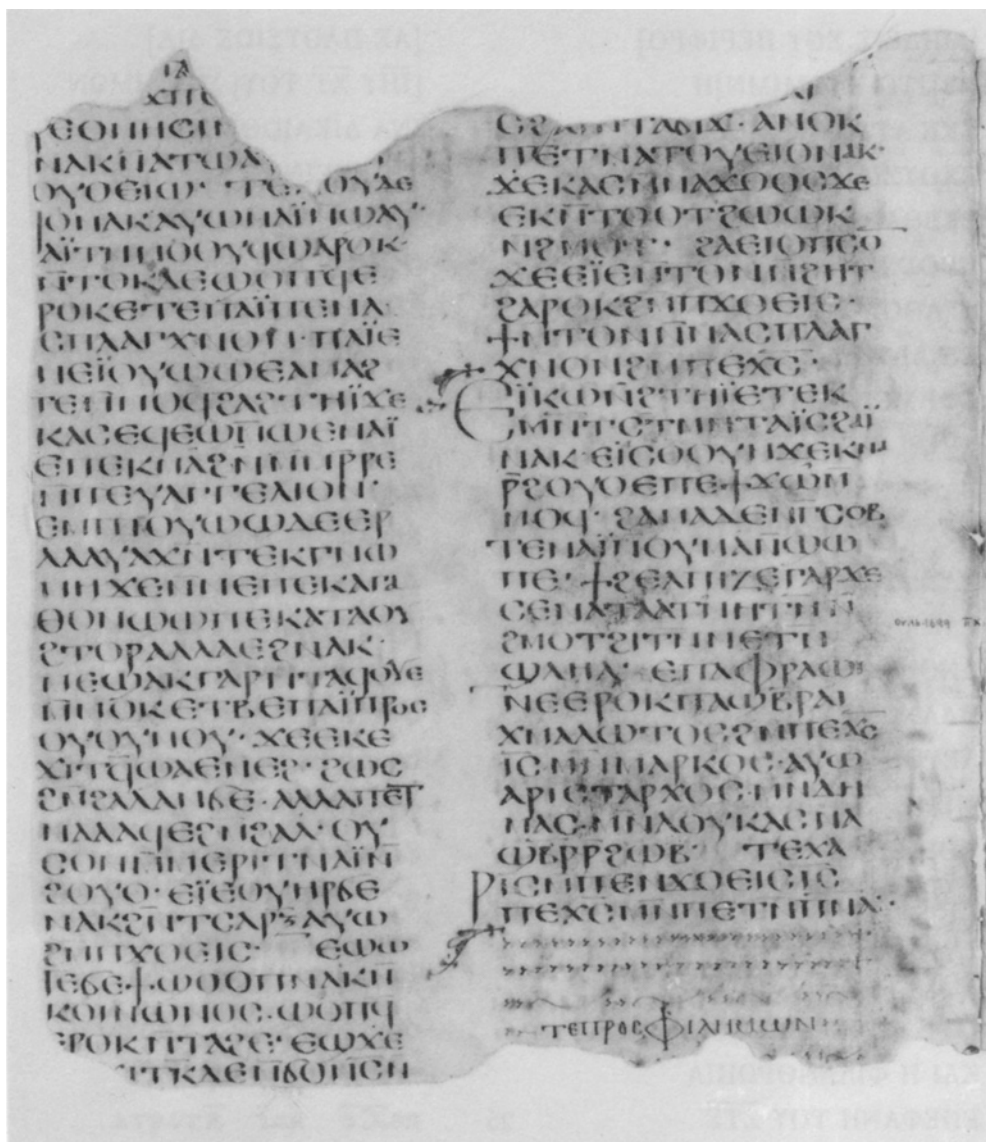 ⲉⲟⲛⲏⲥⲓ
ⲛⲁⲕⲛⲁⲧϣⲁ
ⲟⲩⲟⲉⲓϣ· ⲧⲉ ⲟⲩⲇⲉ
ⲟⲛⲁⲕⲁⲩⲱⲛⲁⲓ̈ⲛϣⲁⲩ·
ⲁⲓ̈ⲧⲛⲛⲟⲟⲩϥϣⲁⲣⲟⲕ·
ⲛ̅ⲧⲟⲕⲇⲉϣⲟⲡϥⲉ
ⲣⲟⲕⲉⲧⲉⲡⲁⲓ̈ⲡⲉⲛⲁ
ⲥⲡⲗⲁⲅⲭⲛⲟⲛ·ⲡⲁⲓ̈ⲉ
ⲛⲉⲓ̈ⲟⲩⲱϣⲉⲁⲙⲁϩ
ⲧⲉⲙⲙⲟϥϩⲁϩⲧⲏⲓ̈ϫⲉ
ⲕⲁⲥⲉϥⲉϣⲙ̅ϣⲉⲛⲁⲓ̈
ⲉⲡⲉⲕⲙⲁϩⲛⲙⲙⲣⲣⲉ
ⲙ̅ⲡⲉⲩⲁⲅⲅⲉⲗⲓⲟⲛ·
ⲉⲙⲡⲓⲟⲩⲱϣⲇⲉⲉⲣ
ⲗⲁⲁⲩⲁϫⲛ̅ⲧⲉⲕⲅⲛⲱ
ⲙⲏϫⲉⲛⲛⲉⲡⲉⲕⲁⲅⲁ
ⲑⲟⲛϣⲱⲡⲉⲕⲁⲧⲁⲟⲩ
ϩⲧⲟⲣⲁⲗⲗⲁⲉϩⲛⲁⲕ·
ⲙⲉϣⲁⲕⲅⲁⲣⲛⲧⲁϥⲟⲩⲉ
ⲙⲙⲟⲕⲉⲧⲃⲉⲡⲁⲓ̈ⲡⲣⲟⲥ
ⲟⲩⲟⲩⲛⲟⲩ· ϫⲉⲉⲕⲉ
ϫⲓⲧϥ̅ϣⲁⲉⲛⲉϩ· ϩⲱⲥ
ϩⲙ̅ϩⲁⲗⲁⲛⲃⲉ·ⲁⲗⲗⲁⲡⲉⲧ
ⲛⲁⲁⲁϥⲉϩⲙϩⲁⲗ·ⲟⲩ
ⲥⲟⲛⲙ̅ⲙⲉⲣⲓⲧⲛⲁⲓ̈ⲛ̅
ϩⲟⲩⲟ·ⲉⲓ̈ⲉⲟⲩⲏⲣϭⲉ
ⲛⲁⲕϩⲛ̅ⲧⲥⲁⲣⲝ·ⲁⲩⲱ
ϩⲙⲡϫⲟⲉⲓⲥ· ⲉϣ
ϫⲉϭⲉⲕϣⲟⲟⲡⲛⲁⲕⲛ̅
ⲕⲟⲓⲛⲱⲛⲟⲥ·ϣⲟⲡϥ
ⲉⲣⲟⲕⲛⲧⲁϩⲉ·ⲉϣϫⲉ
ϥⲧⲕⲁⲉⲛϭⲟⲛⲥⲛ
ⲁⲛⲟⲕ
ⲡⲉⲧⲛⲁⲧⲟⲩⲉⲓⲟⲛⲁⲕ·
ϫⲉⲕⲁⲥⲛⲛⲁϫⲟⲟⲥϫⲉ
ⲉⲕⲛ̅ⲧⲟⲟⲧϩⲱⲱⲕ
ⲛϩⲙⲟⲕ· ϩⲁⲉⲓⲟⲡⲥⲟ
ϫⲉⲉⲓ̈ⲉⲙⲧⲟⲛⲛϩⲏⲧ
ϩⲁⲣⲟⲕϩⲙⲡϫⲟⲉⲓⲥ·
ϯⲙⲧⲟⲛⲛⲛⲁⲥⲡⲗⲁⲅ
ⲭⲛⲟⲛϩⲙⲡⲉⲭⲥ
ⲉⲓ̈ⲕⲱⲛ̅ϩⲧⲏⲓ̈ⲉⲧⲉⲕ
ⲙⲛⲧⲥⲧⲙⲏⲧⲁⲓ̈ⲥϩⲁⲓ̈
ⲛⲁⲕ·ⲉⲓ̈ⲥⲟⲟⲩⲛϫⲉⲕⲛⲁ
ⲣ̅ϩⲟⲩⲟⲉⲡⲉϯϫⲱⲙ̅
ⲙⲟϥ·ϩⲁⲙⲁⲇⲉⲛⲅⲥⲟⲃ
ⲧⲉⲛⲁⲓ̈ⲛⲟⲩⲙⲁⲛ̅ϣⲱ
ⲡⲉ·ϯϩⲉⲗⲡⲓⲍⲉⲅⲁⲣϫⲉ
ⲥⲉⲛⲁⲧⲁⲁⲧⲛⲏⲧⲛ̅ⲛ̅
ϩⲙⲟⲧϩⲓⲧⲛⲛⲉⲧⲛ
ϣⲗⲏⲗ· ⲉⲡⲁⲫⲣⲁϣⲓ
ⲛⲉⲉⲣⲟⲕⲡⲁϣⲃⲣⲁⲓ
ⲭⲙⲁⲗⲱⲧⲟⲥϩⲙⲡⲉⲭⲥ
ⲓ̅ⲥ̅ⲙⲛⲙⲁⲣⲕⲟⲥ·ⲁⲩⲱ
ⲁⲣⲓⲥⲧⲁⲣⲭⲟⲥ·ⲙⲛⲇⲏ
ⲙⲁⲥ·ⲙⲛⲗⲟⲩⲕⲁⲥⲛⲁ
ϣⲃⲣⲣϩⲱⲃ· ⲧⲉⲭⲁ
ⲣⲓⲥⲙⲡⲉⲛϫⲟⲉⲓⲥⲓ̅ⲥ̅
ⲡⲉⲭⲥⲙⲛⲡⲉⲧⲙⲡⲛⲁ·
ⲧⲉⲡⲣⲟⲥⲫⲓⲗⲏⲙⲱⲛ